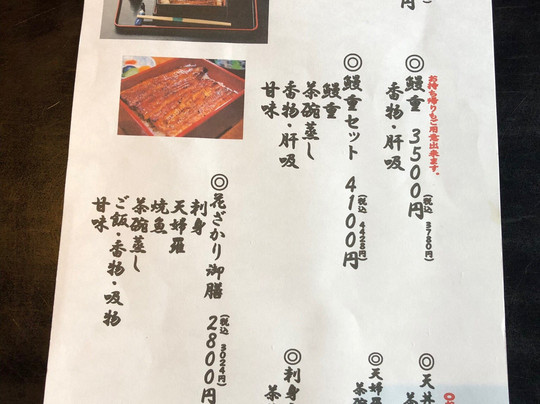 円
お持ち帰りもご用意出来ます。
◎鰻重 3500円
(税込 3780円)
香物・肝吸
◎鰻重セット 4100円
(税込 4428円)
鰻重
茶碗蒸し
香物・肝吸
甘味
◎花ざかり御膳 2800円
(税込 3024円)
刺身
天婦羅
焼魚
茶碗蒸し
ご飯・香物・吸物
甘味
◎天丼
茶
◎天婦羅
茶碗
◎刺身
茶